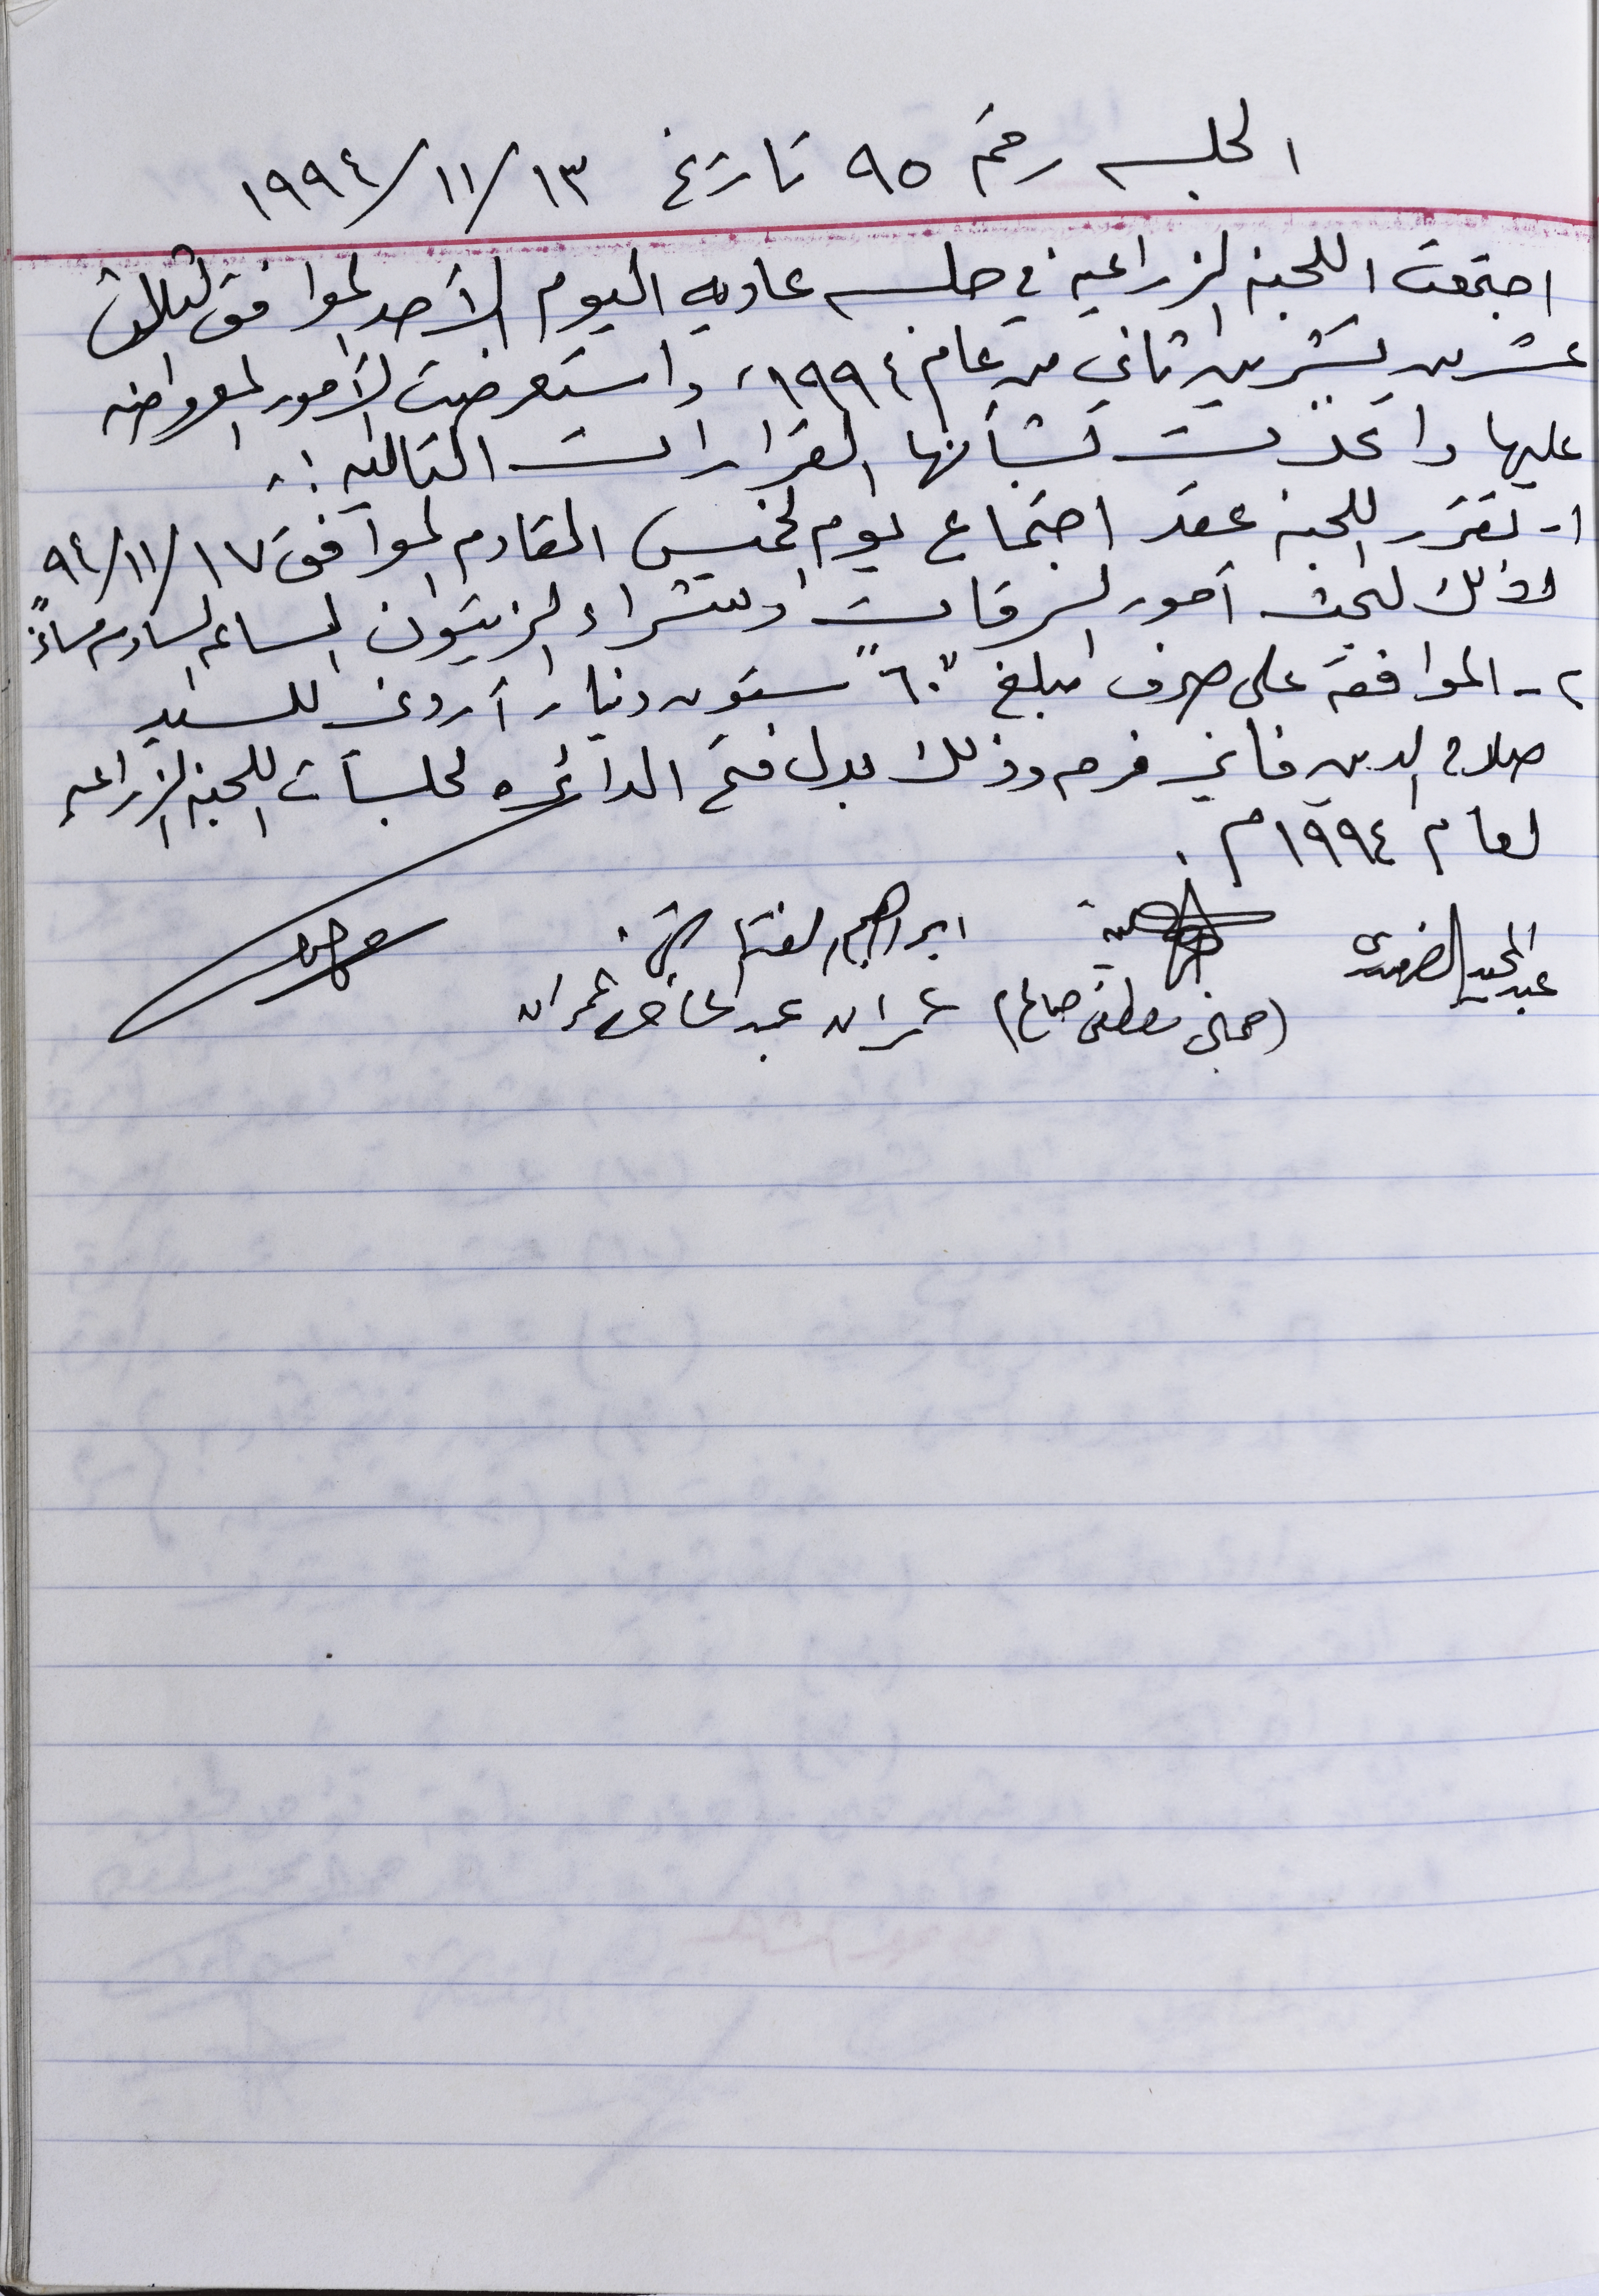 الجلسه رقم ٩٥ تاريخ ١٣/١١/١٩٩٤
اجتمعت اللجنه الزراعيه في جلسه عاديه اليوم الأحد الموافق لثلاث
عشر من تشرين الثاني من عام ١٩٩٤، واستعرضت الأمور المعروضه
عليها واتخذت بشأنها القرارات التاليه :-
١- تقرر اللجنه عقد اجتماع يوم الخميس القادم الموافق ١٧/١١/٩٤
وذلك لبحث أمور السرقات وشراء الزيتون الساعه السادسه مساءً
٢- الموافقة على صرف مبلغ "٦٠" ستون دينار أردني للسيد
صلاح الدين فرم وذلك بدل فتح الدائره لجلسات اللجنه الزراعيه
لعام ١٩٩٤م .
عبد المجيد ابراهيم
(صالح مصطفى) عمران عبد عمران